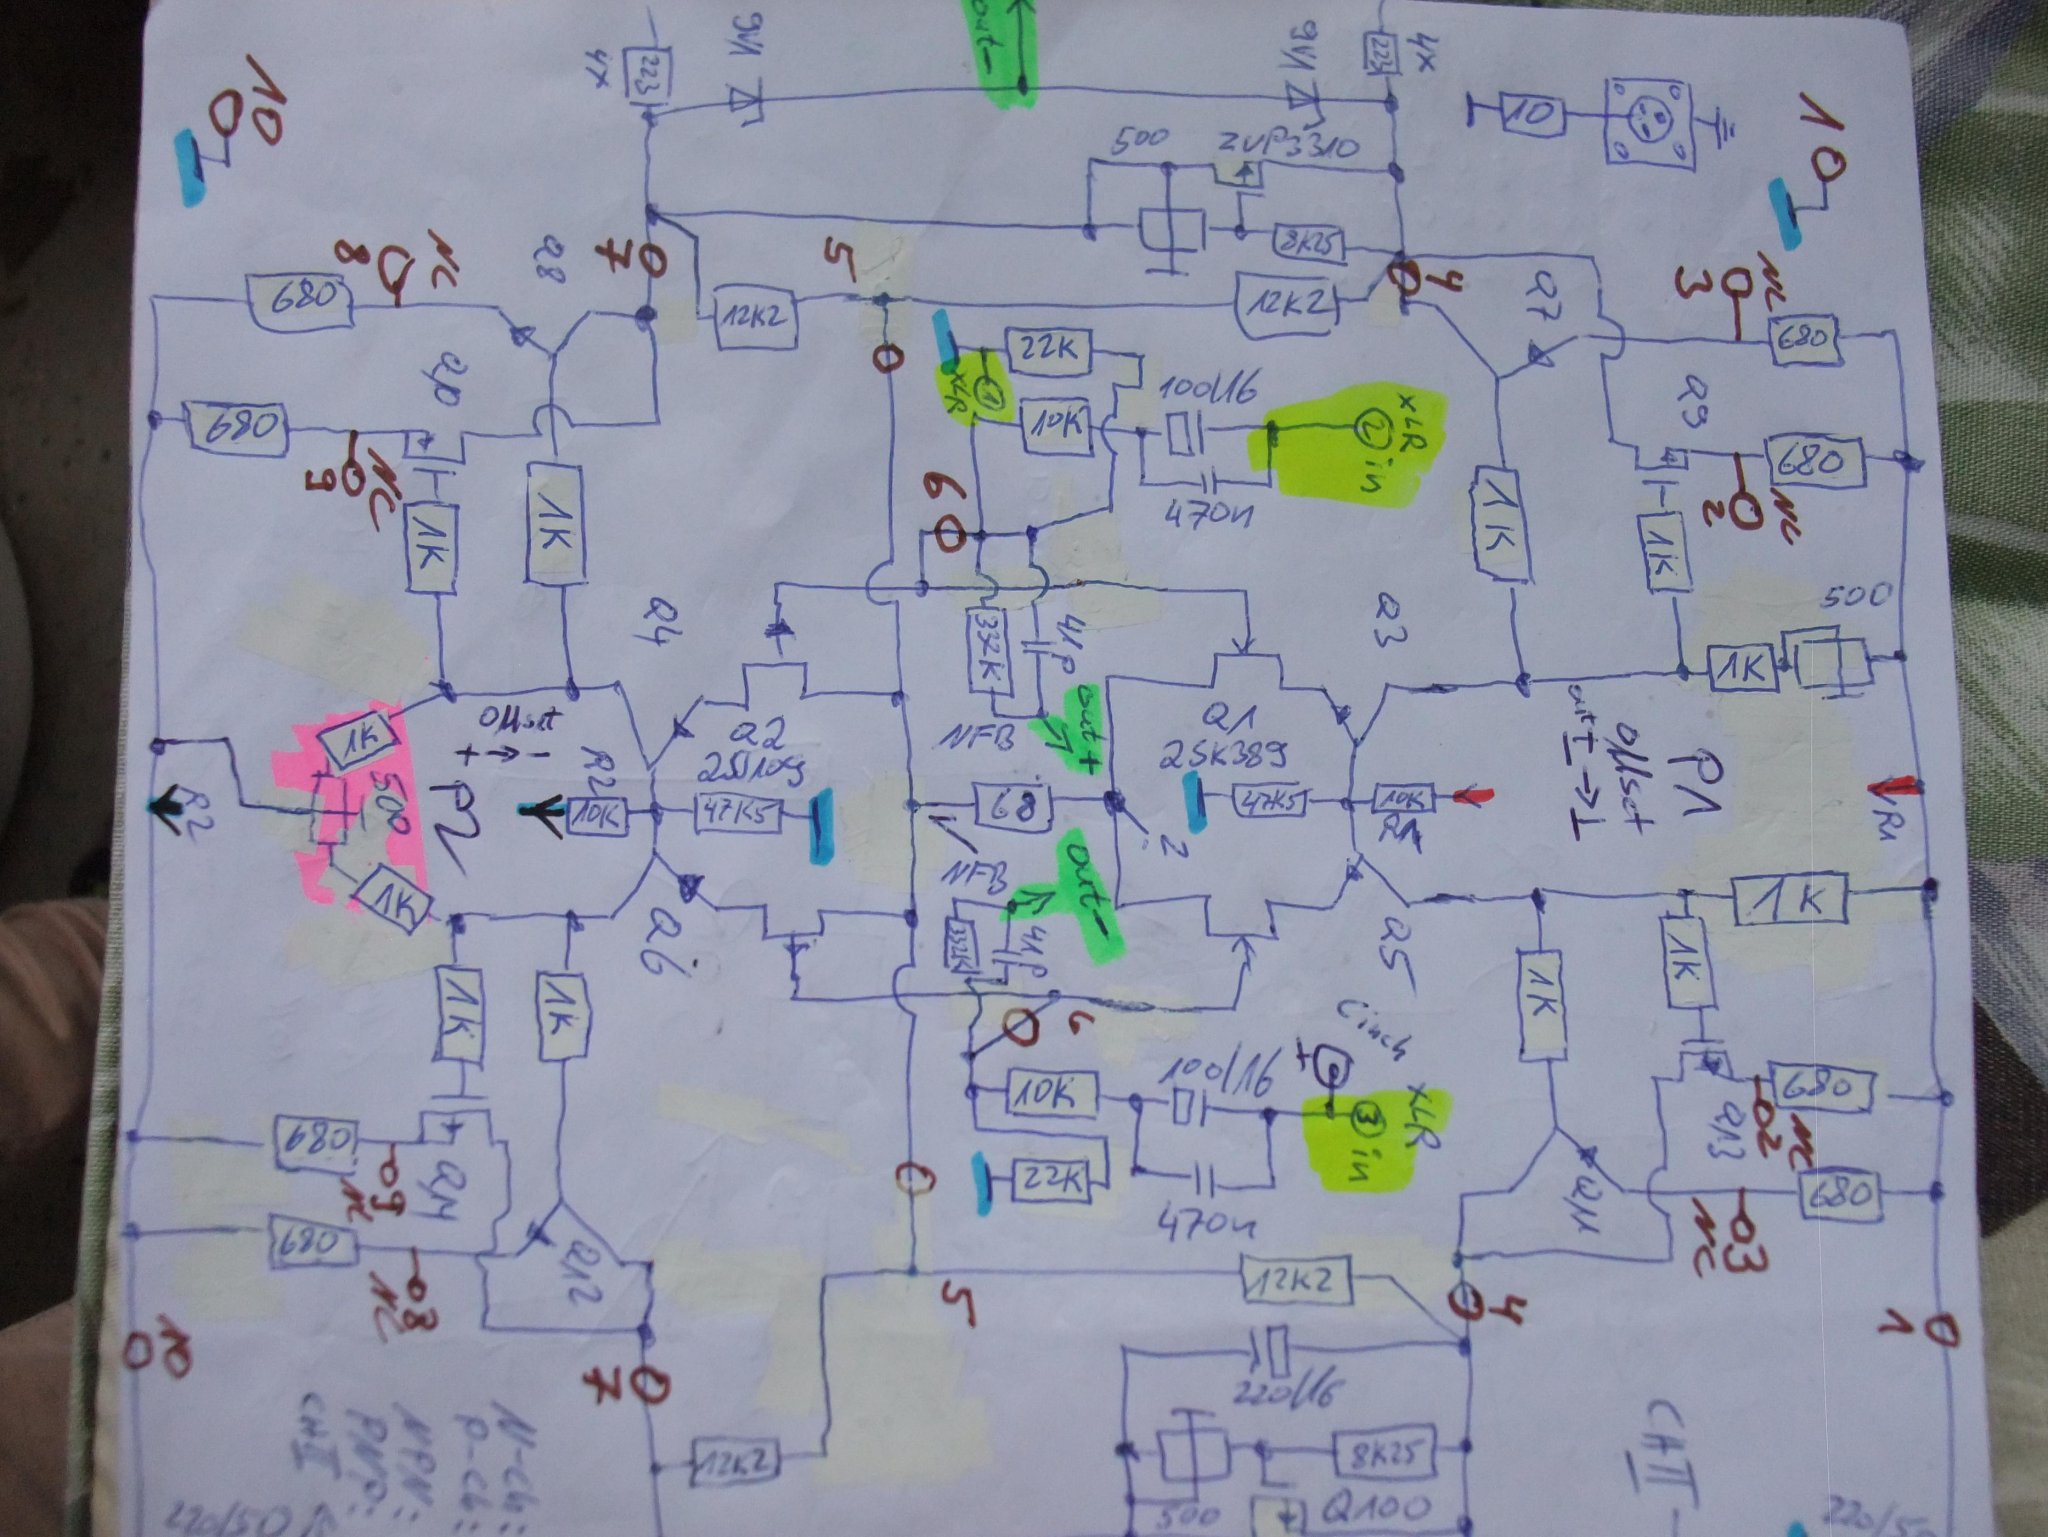 9V1
out-
9V1
4x
223
223
4x
10
10
10
500
ZVP3310
8K25
NC
8
Q8
7
5
4
Q7
3
NC
680
12K2
12K2
680
22K
XLR
1
10K
100/16
XLR
2
in
470n
Q10
680
NC
9
6
Q9
680
NC
2
1K
1K
1K
1K
500
Q4
332K
41p
out+
NFB
Q3
1K
1K
500
P2
Offset
+ ←→ -
Q2
2SJ109
Q1
2SK389
out ± → ⊥
Offset
P1
R2
R2
10K
47K5
68
2
47K5
10K
R1
R1
1K
Q6
NFB
out-
332K
41p
Q5
1K
1K
1K
6
Cinch
+
1K
1K
10K
100/16
XLR
3
in
22K
470n
680
9
NC
Q14
680
8
NC
Q12
680
2
NC
Q13
680
3
NC
Q11
10
7
5
12K2
4
1
12K2
220/16
8K25
500
Q100
CHII
N-Ch:
P-Ch:
NPN:
PNP:
CHII
220/50
220/5